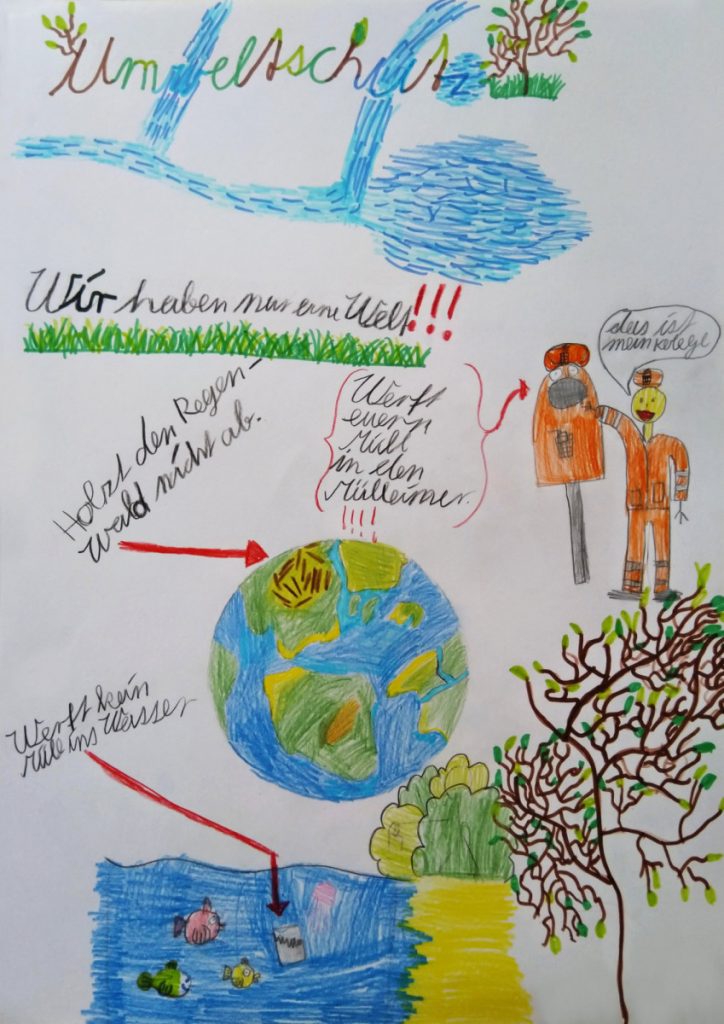 Umweltschutz
Wir haben nur eine Welt!!!
das ist
mein kolege
Holzt den Regen-
Wald nicht ab.
Werft
euern
Müll
in den
Mülleimer.
!!!!
Werft kein
Müll ins Wasser